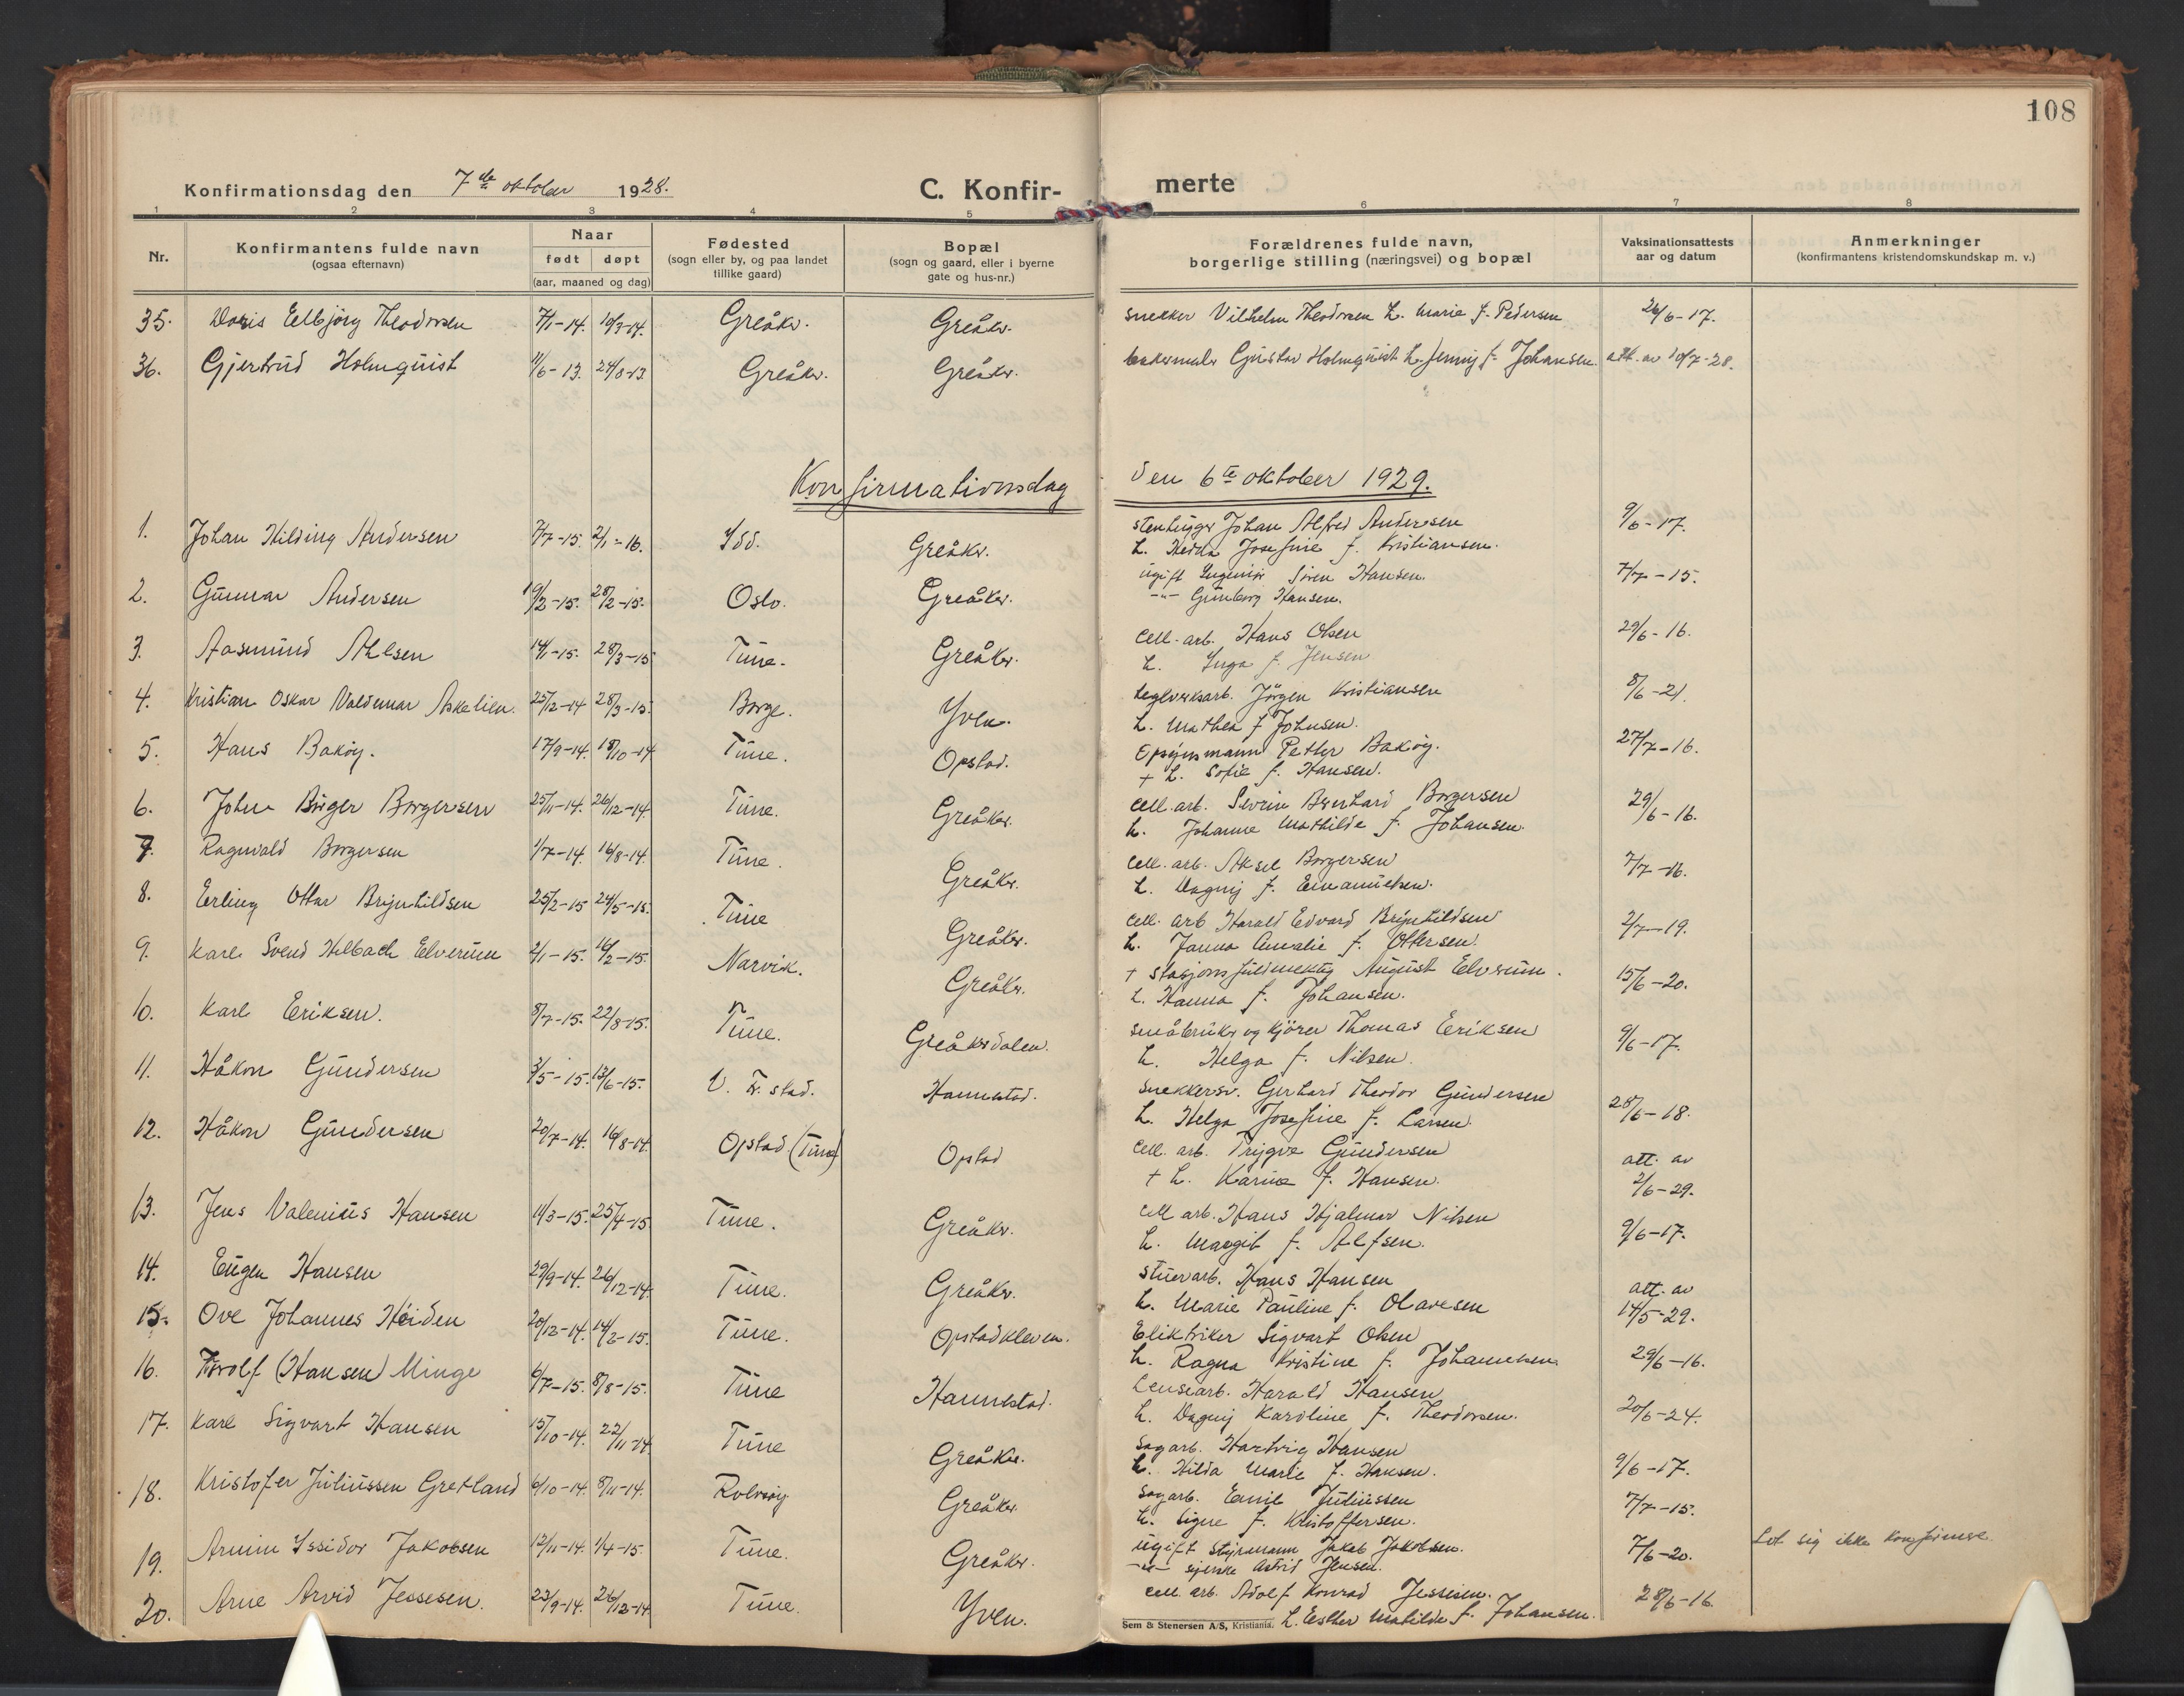 108
Konfirmationsdag den 7de oktober 1928.
C. Konfir-
merte
1 2 3 4 5 6 7 8
Nr.
Konfirmantens fulde navn
(ogsaa efternavn)
Naar
født døpt
(aar, maaned og dag)
Fødested
(sogn eller by, og paa landet
tillike gaard)
Bopæl
(sogn og gaard, eller i byerne
gate og hus-nr.)
Forældrenes fulde navn,
borgerlige stilling (næringsvei) og bopæl
Vaksinationsattests
aar og datum
Anmerkninger
(konfirmantens kristendomskundskap m. v.)
35. Doris Elbjörg Theodorsen 7/1-14. Greåkr. Greåkr. snekker Vilhelm Theodorsen h. Marie f. Pedersen 26/6-17.
36. Gjertrud Holmquist 11/6-13. 24/8-13. Greåkr. Greåkr. Gustav Holmquist h. Jenny f. Johansen. att. av 10/7-28.
Konfirmationsdag den 6te oktober 1929.
1. Johan Hilding Andersen 7/7-15. 2/1-16. Idd. Greåkr. stenhugger Johan Alfred Andersen 9/6-17.
h. Hedda Josefine f. Kristiansen.
2. Gunnar Andersen 19/2-15. 28/2-15. Oslo. Greåkr. ugift Ingeniör Sören Hansen. 7/7-15.
-"- Gunborg Hansen.
3. Aasmund Ahlsen 14/1-15. 28/3-15 Tune. Greåkr. Cell. arb. Hans Olsen 29/6-16.
h. Inga f. Jensen
4. Kristian Oskar Valdemar Askelien. 25/12-14 28/3-15. Borge. Yven. teglverksarb. Jörgen Kristiansen 8/6-21.
h. Mathea f Johnsen.
5. Hans Bakøy. 17/9-14. 18/10-14 Tune. Opstad. Opsynsmann Petter Bakøy. 27/7-16.
+ h. Sofie f. Hansen.
6. John Birger Borgersen 25/11-14. 26/12-14. Tune. Greåker. cell. arb. Severin Bernhard Borgersen 29/6-16.
h. Johanne Mathilde f. Johansen.
7. Ragnvald Borgersen 1/7-14. 16/8-14. Tune. Greåkr. Cell. arb. Aksel Borgersen 7/7-16.
h. Dagny f. Emanuelsen.
8. Erling Ottar Brynhildsen 25/2-15 24/5-15. Tune Greåkr. Cell. arb Harald Edvard Brynhildsen 2/7-19.
h. Janna Amalie f. Ottersen.
9. Karl Svend Helbach Elverum 2/1-15. 16/2-15. Narvik. Greåkr. + stasjonsfuldmektig August Elverum. 15/6-20.
h. Hanna f. Johansen.
10. Karl Eriksen. 8/7-15. 22/8-15. Tune. Greåkerdalen. småbruker og kjörer Thomas Eriksen 9/6-17.
h. Helga f. Nilsen.
11. Håkon Gundersen 3/5-15. 13/6-15. V. Fr. stad. Hannestad. snekkersv. Gerhard Theodor Gundersen 28/6-18.
h. Helga Josefine f. Larsen.
12. Håkon Gundersen 20/7-14. 16/8-14. Opstad. (Tune) Opstad Cell. arb. Trygve Gundersen att. av
+ h. Karine f. Hansen. 2/6-29.
13. Jens Valenius Hansen 11/3-15. 25/4-15 Tune. Greåkr. Cell arb. Hans Hjalmar Nilsen 9/6-17.
h. Margit f. Alfsen.
14. Eugen Hansen 29/9-14. 26/12-14. Tune. Greåkr. stuerarb. Hans Hansen att. av
h. Marie Pauline f. Olavesen 14/5-29.
15. Ove Johannes Heiden 20/12-14. 14/2-15. Tune. Opstadkleven. Elektriker Sigvart Olsen
h. Ragna Kristine f. Johannesen. 29/6-16.
16. Torolf (Hansen) Minge 6/7-15. 8/8-15. Tune Hannestad. Lensearb. Harald Hansen
h. Dagny Karoline f. Theodorsen. 20/6-24.
17. Karl Sigvart Hansen 15/10-14. 22/11-14 Tune Greåkr. Sagarb. Hartvig Hansen
h. Hilda Marie f. Hansen. 9/6-17.
18. Kristofer Juliussen Gretland 6/10-14. 8/11-14. Rolvsøy Greåkr. Sagarb. Emil Juliussen 7/7-15.
h. Signe f. Kristoffersen.
19. Armin Issidor Jakobsen 12/11-14. 1/4-15. Tune. Greåkr. ugift styrmann Jakob Jakobsen. 7/6-20. Lot sig ikke konfirmere
-"- Astrid Jensen.
20. Arne Arvid Jessesen. 23/9-14. 26/12-14 Tune. Yven. cell. arb. Adolf Konrad Jessesen. 28/6-16
h. Esther Matilde f. Johansen.
Sem & Stenersen A/S, Kristiania.